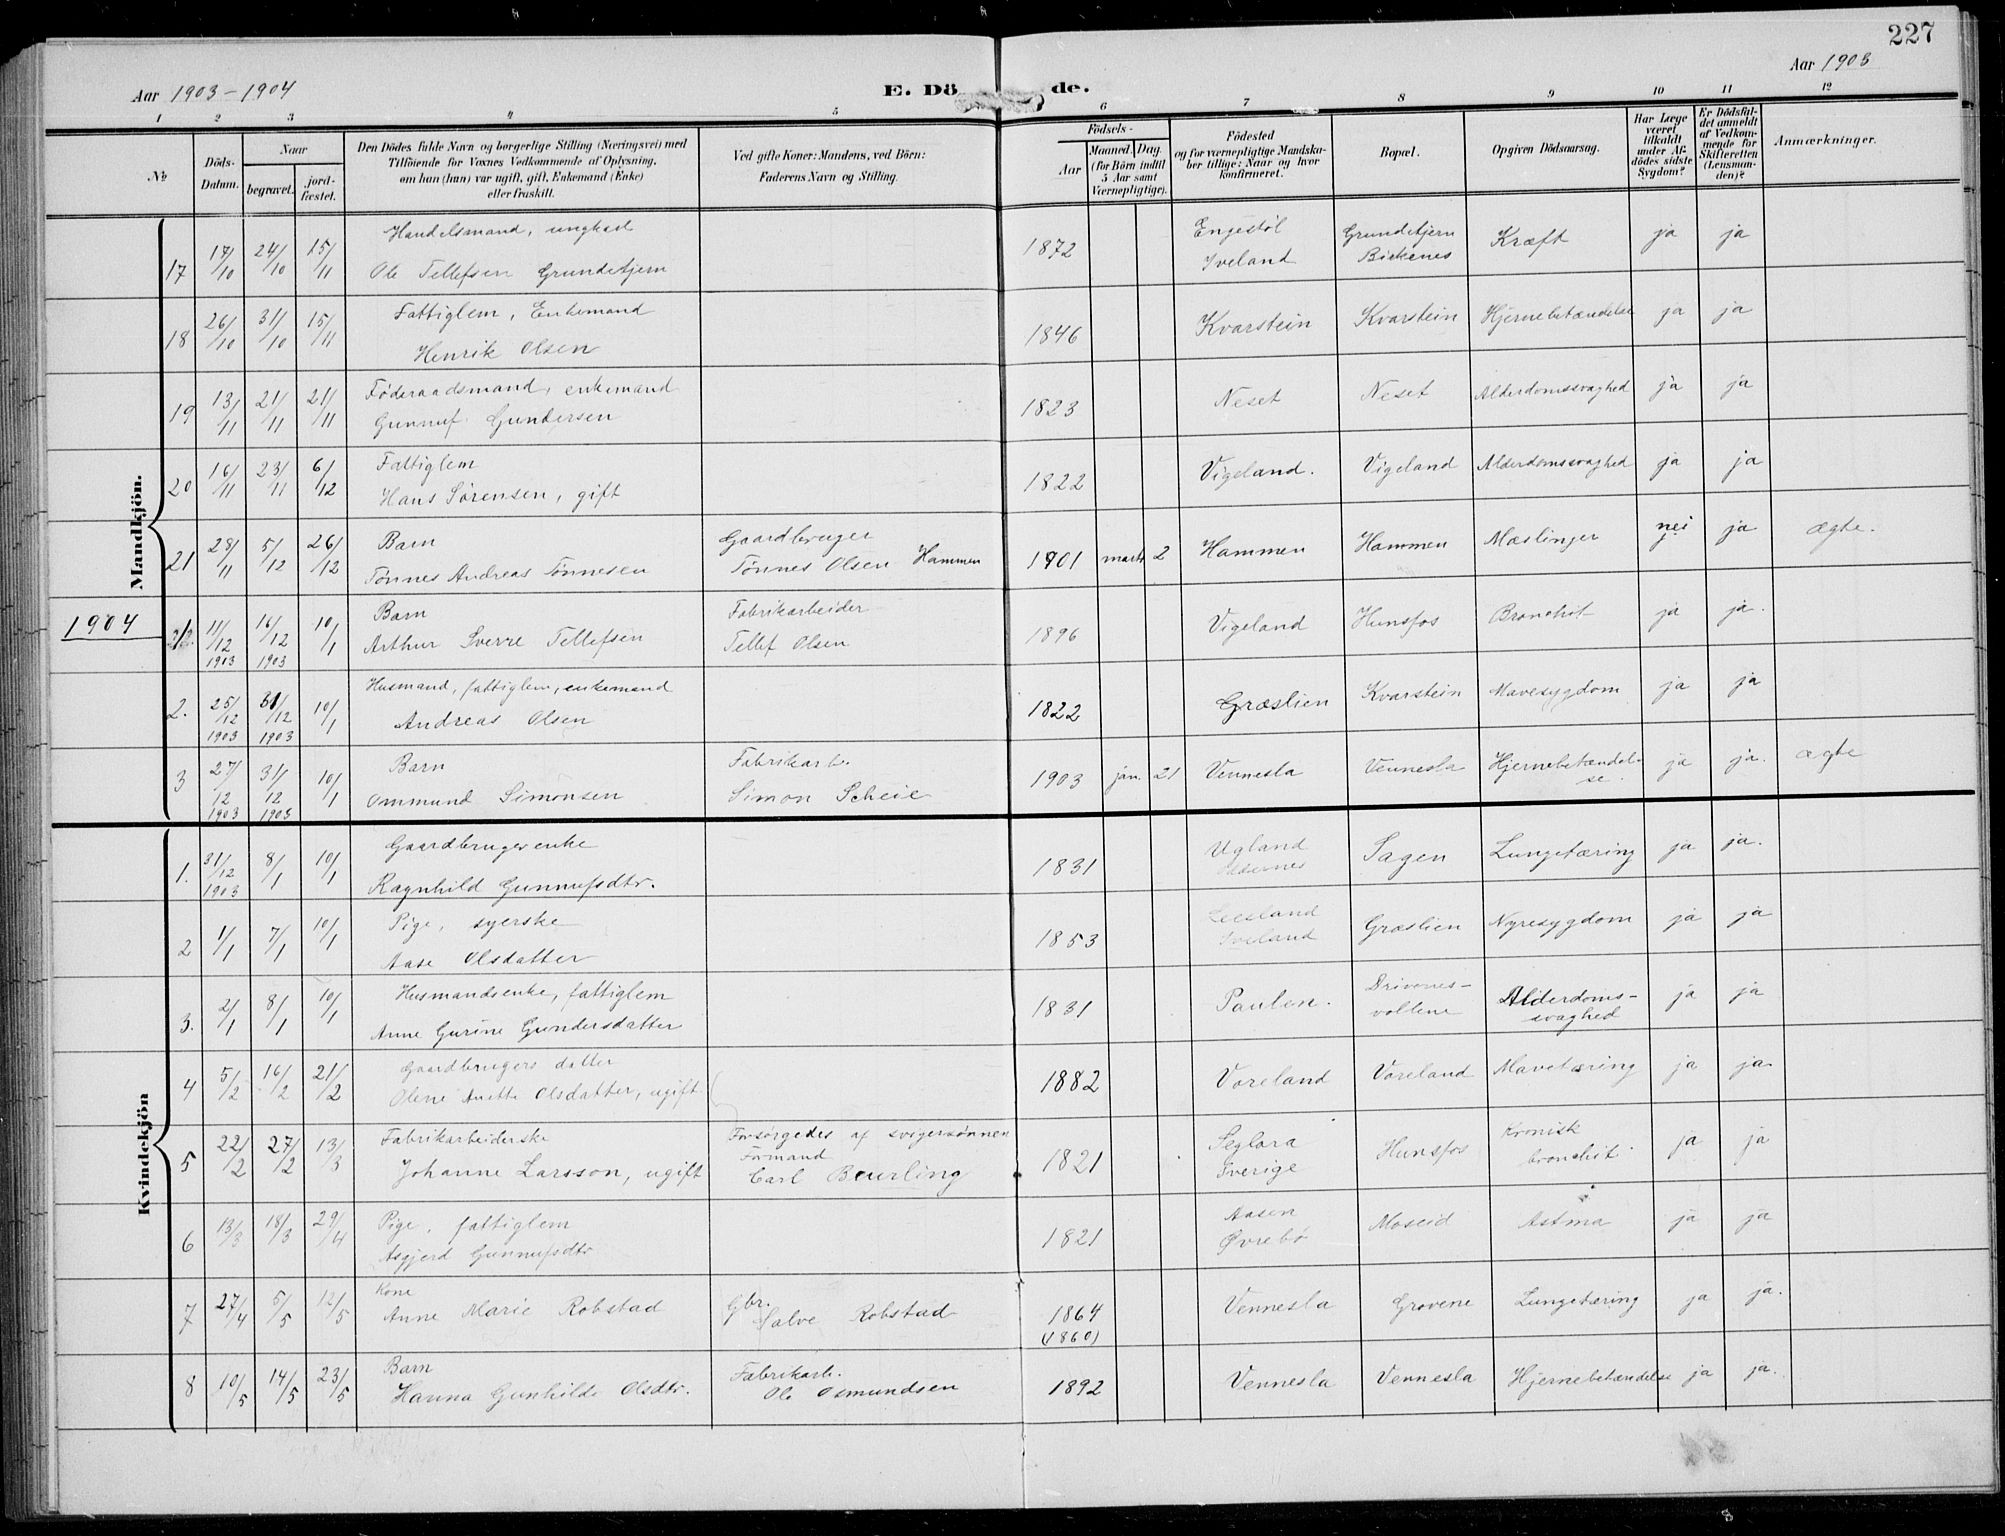 227
Aar 1903-1904
E. Dö de.
Aar 1903
1 2 3 4 5 6 7 8 9 10 11 12
№
Döds-Datum.
Naar
begravet.
jord-fæstet.
Den Dödes fulde Navn og borgerlige Stilling (Næringsvei) med
Tilföiende for Voxnes Vedkommende af Oplysning,
om han (hun) var ugift, gift, Enkemand (Enke)
eller fraskilt.
Ved gifte Koner: Mandens, ved Börn:
Faderens Navn og Stilling.
Födsels-
Aar
Maaned. Dag.
(for Börn indtil
5 Aar samt
Værnepligtige).
Födested
og for værnepligtige Mandska-
ber tillige: Naar og hvor
konfirmeret.
Bopæl.
Opgiven Dödsaarsag.
Har Læge
været
tilkaldt
under Af-
dödes sidste
Sygdom?
Er Dödsfal-
det anmeldt
af Vedkom-
mende for
Skifteretten
(Lensman-
den)?
Anmærkninger.
Mandkjön.
Handelsmand, ungkarl Engestöl Grundetjern
17 17/10 24/10 15/11 Ole Tellefsen Grundetjern 1872 Iveland Birkenes Kræft ja ja
Fattiglem, Enkemand
18 26/10 31/10 15/11 Henrik Olsen 1846 Kvarstein Kvarstein Hjernebetændelse ja ja
Föderaadsmand, enkemand
19 13/11 21/11 21/11 Gunnuf Gundersen 1823 Neset Neset Alderdomssvaghed ja ja
Fattiglem
20 16/11 23/11 6/12 Hans Sörensen, gift 1822 Vigeland. Vigeland Alderdomssvaghed ja ja
Barn Gaardbruger
21 28/11 5/12 26/12 Tönnes Andreas Tönnesen Tönnes Olsen Hammen 1901 marts 2 Hammen Hammen Mæslinger nei ja ægte.
1904
Barn Fabrikarbeider
11/12 1903 16/12 1903 10/1 Arthur Sverre Tellefsen Tellef Olsen 1896 Vigeland Hunsfos Bronchit ja ja.
Husmand, fattiglem, enkemand
2. 25/12 1903 31/12 1903 10/1 Andreas Olsen 1822 Græslien Kvarstein Mavesygdom ja ja
Barn Fabrikarb.
3 27/12 1903 31/12 1903 10/1 Ommund Simonsen Simon Scheie 1903 jan. 21 Vennesla Vennesla Hjernebetændel-
se. ja ja. ægte
Kvindekjön
Gaardbrugerenke Ugland
1. 31/12 1903 8/1 10/1 Ragnhild Gunnufsdtr. 1831 Sagen Lungetæring ja ja.
Pige, syerske
2 1/1 7/1 10/1 Aase Olsdatter 1853 Iveland Græslien Nyresygdom ja ja
Husmandsenke, fattiglem Drivenes-
3. 2/1 8/1 10/1 Anne Gurine Gundersdatter 1831 Paulen. vollene Alderdoms-
svaghed ja ja
Gaardbrugers datter
4 5/2 16/2 21/2 Olene Anette Olsdatter, ugift. 1882 Voreland Voreland Mavetæring ja ja
Fabrikarbeiderske Forsörgedes af svigersönnen Seglora Kronisk
Formand
5 22/2 27/2 13/3 Johanne Larsson, ugift Carl Beurling 1821 Sverige Hunsfos bronchit. ja ja
Pige, fattiglem Aasen
6 13/3 18/3 29/4 Asgjerd Gunnufsdtr 1821 Øvrebö Moseid Astma ja ja
Kone Gbr.
7 27/4 5/5 12/5 Anne Marie Robstad Salve Robstad 1864 Vennesla Grovene Lungetæring ja ja.
(1860)
Barn Fabrikarb.
8 10/5 14/5 23/5 Hanna Gunhilde Olsdtr. Ole Osmundsen 1892 Vennesla Vennesla Hjernebetændelse ja ja.